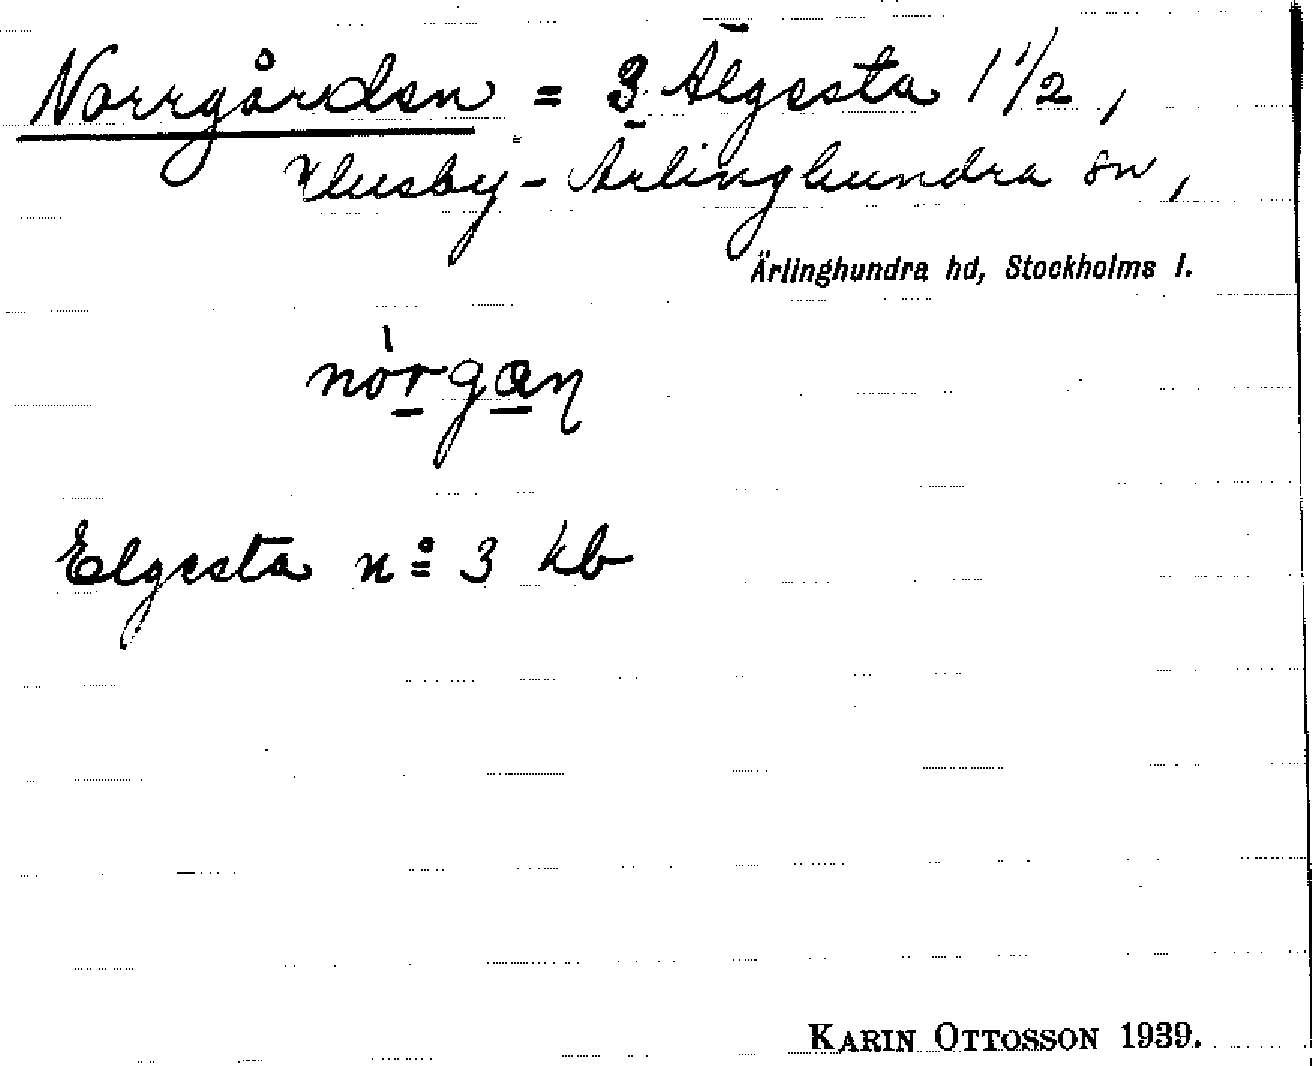 Norrgården = 3 Älgesta 1 1/2,
Husby-Ärlinghundra sn,
Ärlinghundra hd, Stockholms l.
nòrgan
Elgesta no 3 kb
KARIN OTTOSSON 1939.